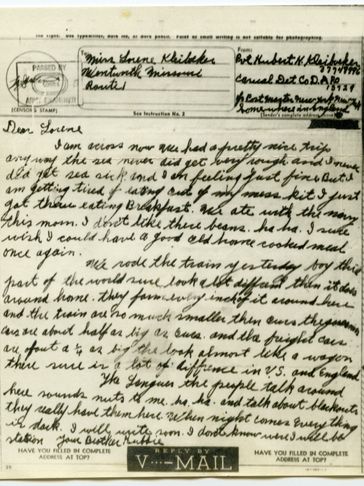 Use typewriter, dark ink, or dark pencil. Faint or small writing is not suitable for photographing.
To:
Miss Lorene Kleiboker
Wentworth Missouri
Route 1
From:
Pvt Hubert H. Kleiboker
Casual Det Co D. APO
% Post Master New York New York
Somewhere in England
(Sender's complete address)
PASSED BY
ARMY EXAMINER
(CENSOR'S STAMP)
See Instruction No. 2
Dear Lorene
I am across now We had a pretty nice trip
any way the sea never did get very rough and I never
did get sea sick and I am feeling just fine But I
am getting tired of eating out of my mess kit I just
got threw eating Breakfast. We ate with the navy
this morn. I don't like there beans. ha. ha. I sure
wish I could have a good old home cooked meal
once again.
We rode the train yesterday boy this
part of the world sure look a lot different then it does
around home. they farm every inch of it around here
and the train are so much smaller then ours the
cars are about half as big as ours. and the freight cars
are about a ¼ as big the look almost like a wagon
there sure is a lot of difference in U.S. and England
The Tongues the people talk around
here sounds nuts to me. ha. ha. and talk about blackouts
they really have them here. When night comes Everything
is dark. I will write soon I don't know were I will be
station Your Brother Hubbie
HAVE YOU FILLED IN COMPLETE
ADDRESS AT TOP?
REPLY BY
V···—MAIL
HAVE YOU FILLED IN COMPLETE
ADDRESS AT TOP?